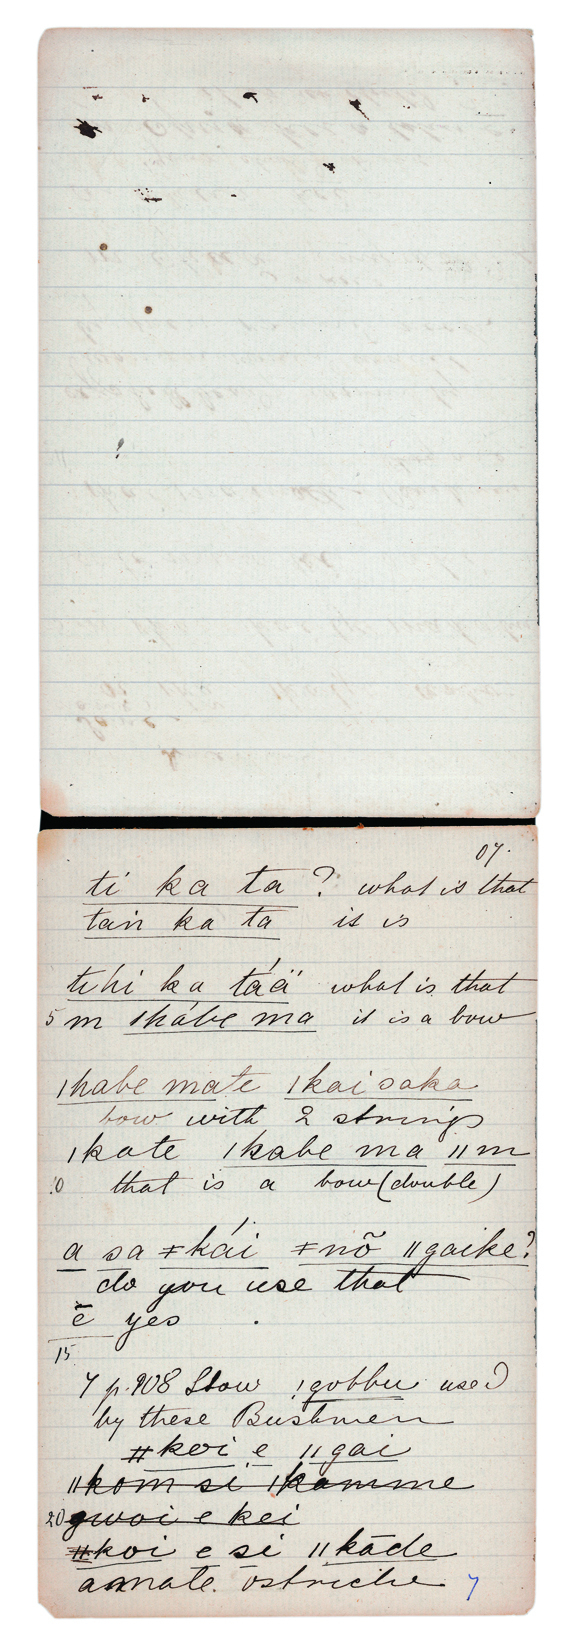 07.
ti ka ta ? what is that
tan ka ta it is
tihi ka táä what is that
5 m ǀkábe ma it is a bow
ǀkabe mate ǀkaisaka
bow with 2 strings
ǀkate ǀkabe ma ǁm
10 that is a bow (double)
a sa ǂkái ǂnõ ǁgaike?
do you use that
ē yes
15
7 p. 108 Stow ǃgobbu used
by these Bushmen
ǂkoi e ǁgai
ǁkom si ǀkamme
20 gwoi e kei
ǂkoi e si ǁkāde
amate. ostriche 7